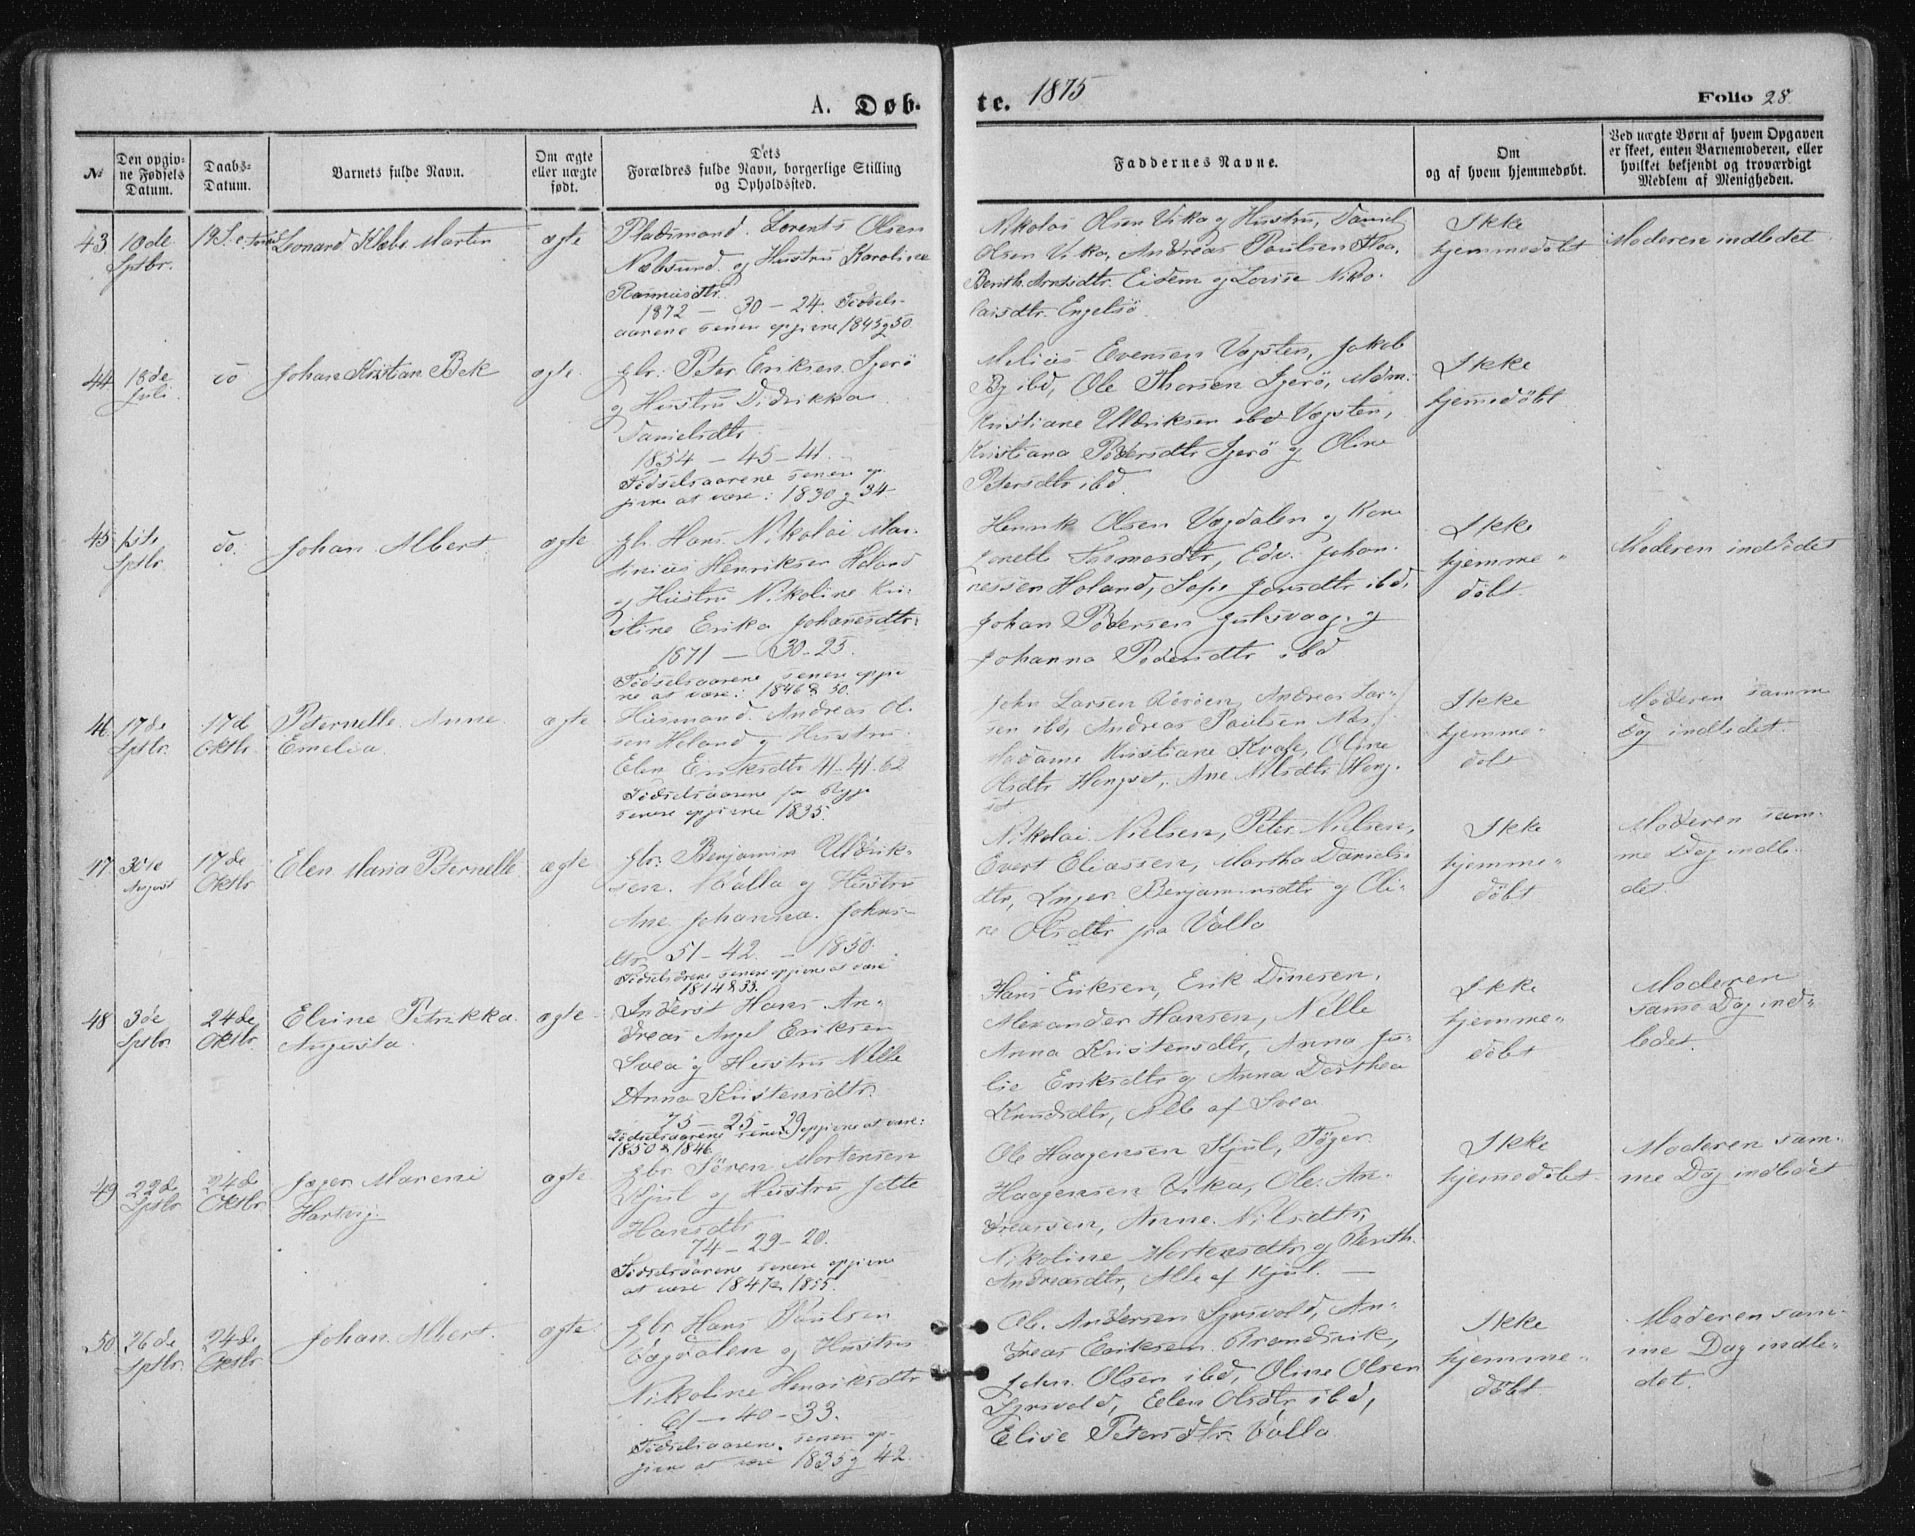 A. Døb-
te. 1875
Folio 28.
No
Den opgiv-
ne Fødsels
Datum.
Daabs-
Datum.
Barnets fulde Navn.
Om ægte
eller uægte
født.
Dets
Forældres fulde Navn, borgerlige Stilling
og Opholdssted.
Faddernes Navne.
Om
og af hvem hjemmedøbt.
Ved uægte Børn af hvem Opgaven
er skeet, enten Barnemoderen, eller
hvilket bekjendt og troværdigt
Medlem af Menigheden.
43
10de
Sptbr.
19
Leonard Klebs Martin
ægte
Pladsmand. Lorents Olsen
Næbsund. og Hustru Karoline
Rasmusdtr.
1872 — 30 — 24. Fødsels-
aarene senere opgivne 1845 g 50.
Nikolai Olsen Vika og Hustru, Daniel
Olsen Vika, Andreas Paulsen
Berith. Arntsdtr. Eidem og Lovise Niko-
laisdtr. Engelsö
Ikke
hjemmedøbt
Moderen indledet
44
18de
Juli
do
Johan Kristian Bek
ægte.
gbr. Peter Eriksen Igerö
og Hustru Didrikka
Danielsdtr.
1854 — 45 — 41.
Fødselsaarene senere op-
givne at være: 1830 g 34.
Melius Evensen Vægsten, Jakob
By ibd, Ole Thorsen Igerö, Mdm.
Kristiane Uldriksen ibd Vægsten,
Kristiana Pedersdtr Igerö og Oline
Petersdtr ibd.
Ikke
hjemedöbt
45
1ste
Sptbr
do.
Johan Albert.
ægte
gb. Hans Nikolai Mar-
tinius Henriksen Holand
og Hustru Nikoline Kri-
stine Erika Johanesdtr.
1871 — 30 - 25.
Fødselsaarene senere opgiv-
ne at være: 1846 & 50.
Henrik Olsen Vægdalen og Kone
Jonette Thomasdtr, Edv. Johan-
nessen Holand, Sofie Jonsdtr ibd,
Johan Pedersen og
Johanna Pedersdtr ibd
Ikke
hjemme-
döbt.
Moderen indledet
46
17de
Sptbr.
17d
Oktbr.
Peternelle Anne
Emelia.
ægte
Husmand. Andreas Ol-
sen Holand og Hustru
Elen Eriksdtr 41-41. 62
Fødselsaarene for Begge
senere opgivne 1835.
John Larsen Andreas Lar-
sen ibd, Andreas Paulsen Næs.
Madame Kristiane Kvale, Oline
Olsdtr Hongset, Ane Nilsdtr Hong-
set
Ikke
hjemme-
döbt
Moderen samme
Dag indledet.
47
30te
August
17de
Oktbr
Elen Maria Peternelle.
ægte
gbr. Benjamin Uldrik-
sen. Valla og Hustru
Ane Johanna. Johns-
dtr. 51 - 42. — 1850.
Fødselsårene senere opgivne at være
1814 & 33.
Nikolai Nielsen, Peter Nielsen,
Evert Eliassen, Martha Daniels-
dtr, Inger Benjaminsdtr og Oli-
ne Olsdtr fra Valla
Ikke
hjemme-
döbt
Moderen sam-
me Dag indle-
det.
48
3de
Sptbr.
24de
Oktbr.
Elvine Petrikka
Augusta.
ægte
Inderst Hans An-
dreas Angel Eriksen
Svea og Hustru Nelle
Anna Kristensdtr.
75 — 25 — 29
Fødselsaarene senere opgivne at være:
1850 & 1846.
Hans Eriksen, Erik Dinesen,
Alexander Hansen, Nelle
Anna Kristensdtr, Anna Ju-
lie Eriksdtr og Anna Dorthea
Knudsdtr, Alle af Svea
Ikke
hjemme-
döbt
Moderen
same Dag ind-
ledet.
49
22de
Sptbr.
24de
Oktbr.
Jæger Mareni
Hartvig
ægte.
gbr. Sören Mortensen
Kjul og Hustru Jette
Hansdtr
74 — 29 — 20.
Fødselsaarene senere opgivne
at være 1847 & 1855.
Ole Haagensen Kjul, Töger
Haagensen Vika, Ole An-
dreasen, Anne Nilsdtr,
Nikoline Mortensdtr og Berith.
Andreasdtr, Alle af Kjul. —
Ikke
hjemmedöbt.
Moderen sam-
me Dag indledet
50
26de
Sptbr.
24de
Oktbr.
Johan Albert.
ægte
gbr Hans Paulsen
Vægdalen og Hustru
Nikoline Henriksdtr
61 — 40 — 33.
Fødselsaarene, senere op-
givne at være 1835 g 42.
Ole Andersen An-
dreas Eriksen Brandsvik,
John. Olsen ibd, Oline Olsen
Eelen Olsdtr ibd,
Elise Petersdtr. Valla
Ikke
hjemme-
döbt
Moderen sam-
me Dag indle-
det.